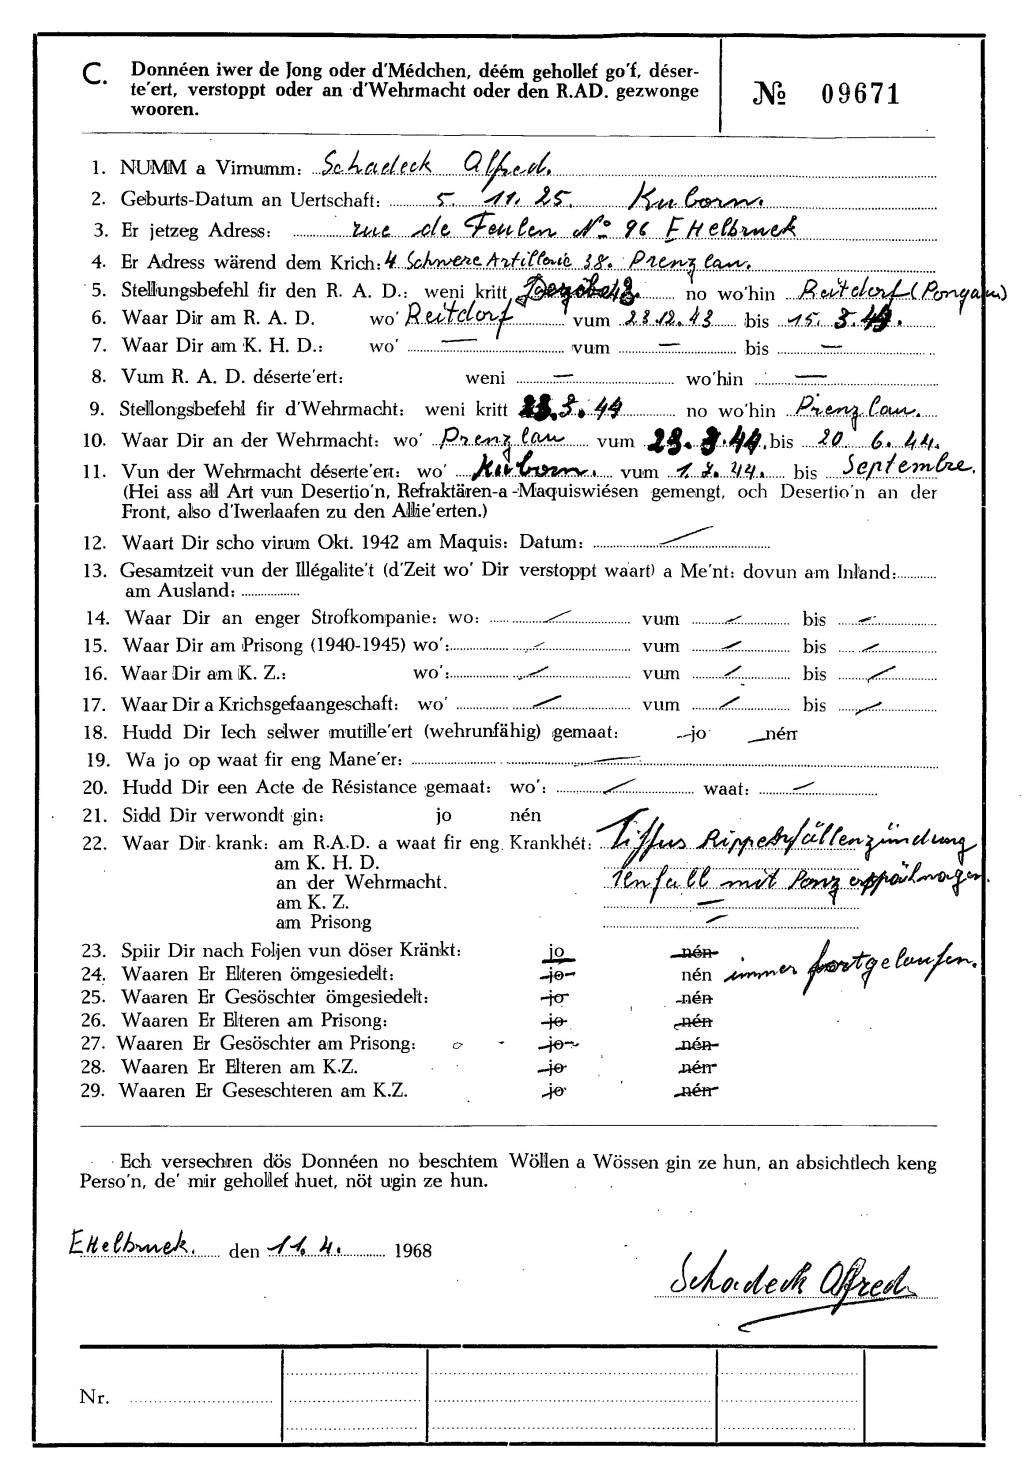 C. Donnéen iwer de Jong oder d'Médchen, déém gehollef go'f, déser-
te'ert, verstoppt oder an d'Wehrmacht oder den R.AD. gezwonge
wooren.
№ 09671
1. NUMM a Virnumm: Schadeck Alfred.
2. Geburts-Datum an Uertschaft: 5. 11. 25. Kuborn.
3. Er jetzeg Adress: rue de Feulen No 96 Ettelbruck
4. Er Adress wärend dem Krich: 4 Schwere Artillerie 38. Prenzlau.
5. Stellungsbefehl fir den R. A. D.: weni kritt 43. no wo'hin Reitdorf (Pongau)
6. Waar Dir am R. A. D. wo' Reitdorf vum 23.12.43 bis 15. 3. 44.
7. Waar Dir am K. H. D.: wo' — vum — bis —
8. Vum R. A. D. déserte'ert: weni — wo'hin —
9. Stellongsbefehl fir d'Wehrmacht: weni kritt 23.3.44 no wo'hin Prenzlau.
10. Waar Dir an der Wehrmacht: wo' Prenzlau vum 23.3.44. bis 20 6.44.
11. Vun der Wehrmacht déserte'ert: wo' Kuborn. vum 1.7.44. bis Septembre.
(Hei ass all Art vun Desertio'n, Refraktären-a-Maquiswiésen gemengt, och Desertio'n an der
Front, also d'Iwerlaafen zu den Allie'erten.)
12. Waart Dir scho virum Okt. 1942 am Maquis: Datum: /
13. Gesamtzeit vun der Illégalite't (d'Zeit wo' Dir verstoppt waart) a Me'nt: dovun am Inland:
am Ausland:
14. Waar Dir an enger Strofkompanie: wo: / vum / bis /
15. Waar Dir am Prisong (1940-1945) wo': / vum / bis /
16. Waar Dir am K. Z.: wo': / vum / bis /
17. Waar Dir a Krichsgefaangeschaft: wo' / vum / bis /
18. Hudd Dir Iech selwer mutille'ert (wehrunfähig) gemaat: jo nén
19. Wa jo op waat fir eng Mane'er:
20. Hudd Dir een Acte de Résistance gemaat: wo': / waat: /
21. Sidd Dir verwondt gin: jo nén
22. Waar Dir krank: am R.A.D. a waat fir eng Krankhét: Tiffus Rippenfällenzündung
am K. H. D.
an der Wehrmacht. Unfall mit Panzerspähwagen.
am K. Z. —
am Prisong —
23. Spiir Dir nach Foljen vun döser Kränkt: jo nén
24. Waaren Er Elteren ömgesiedelt: jo nén immer fortgelaufen.
25. Waaren Er Gesöschter ömgesiedelt: jo nén
26. Waaren Er Elteren am Prisong: jo nén
27. Waaren Er Gesöschter am Prisong: jo nén
28. Waaren Er Elteren am K.Z. jo nén
29. Waaren Er Geseschteren am K.Z. jo nén
Ech versechren dös Donnéen no beschtem Wöllen a Wössen gin ze hun, an absichtlech keng
Perso'n, de' mir gehollef huet, nöt ugin ze hun.
Ettelbruck. den 11. 4. 1968
Schadeck Alfred
Nr.